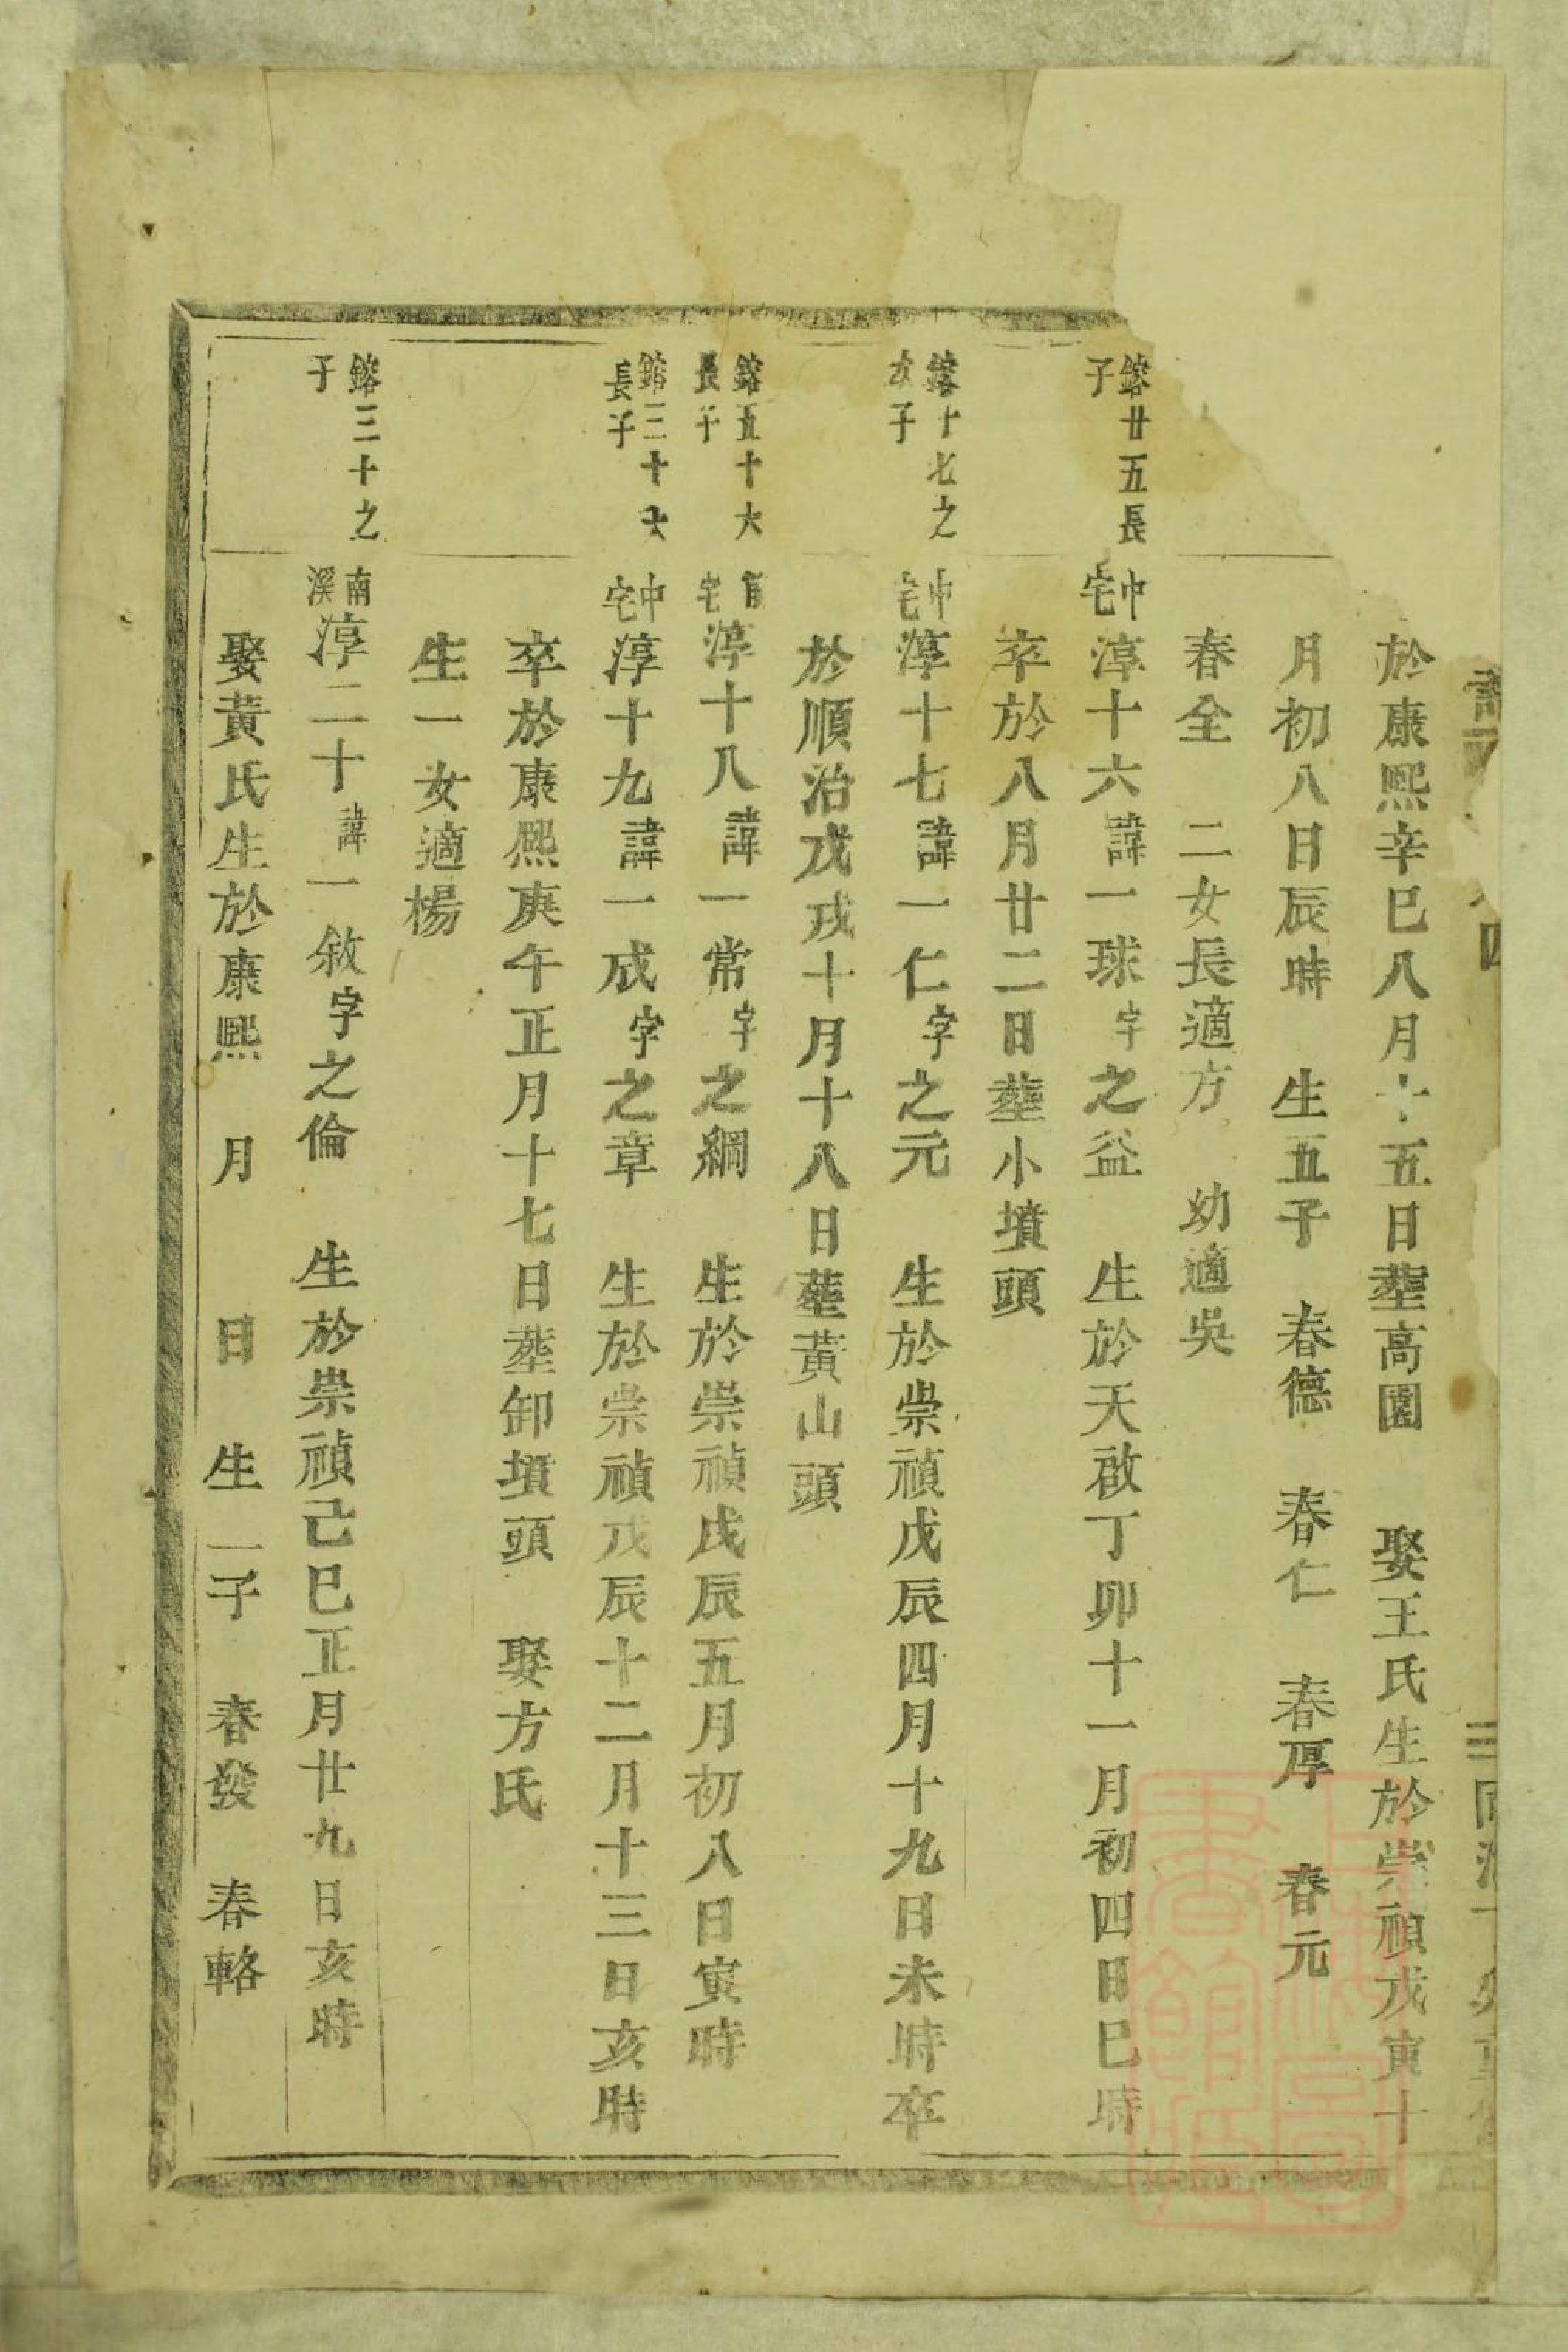 四
於康熙辛巳八月十五日塟高園　娶王氏生於崇禎戊寅十
月初八日辰時　生五子　春德　春仁　春厚　春元
春全　二女長適方　幼適吳
鎔廿五長子
中宅淳十六諱一球字之益　生於天啟丁卯十一月初四日巳時
卒於八月廿二日塟小墳頭
鎔十七之次子
中宅淳十七諱一仁字之元　生於崇禎戊辰四月十九日未時卒
於順治戊戌十月十八日塟黃山頭
鎔五十六長子
宅淳十八諱一常字之綱　生於崇禎戊辰五月初八日寅時
鎔三十六長子
中宅淳十九諱一成字之章　生於崇禎戊辰十二月十三日亥時
卒於康熙庚午正月十七日塟卸墳頭　娶方氏
生一女適楊
鎔三十之子
南溪淳二十諱一敘字之倫　生於崇禎己巳正月廿九日亥時
娶黃氏生於康熙　月　日　生二子　春發　春輅